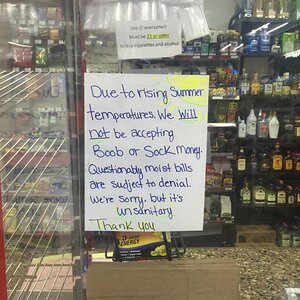 We ID everyone!!
Must be 21 or older
to buy cigarettes and alcohol
Due to rising Summer
temperatures. We Will
not be accepting
Boob or Sock, money.
Questionably moist bills
are sudject to denial.
We're sorry, but it's
unsanitary
Thank you
ENERGY